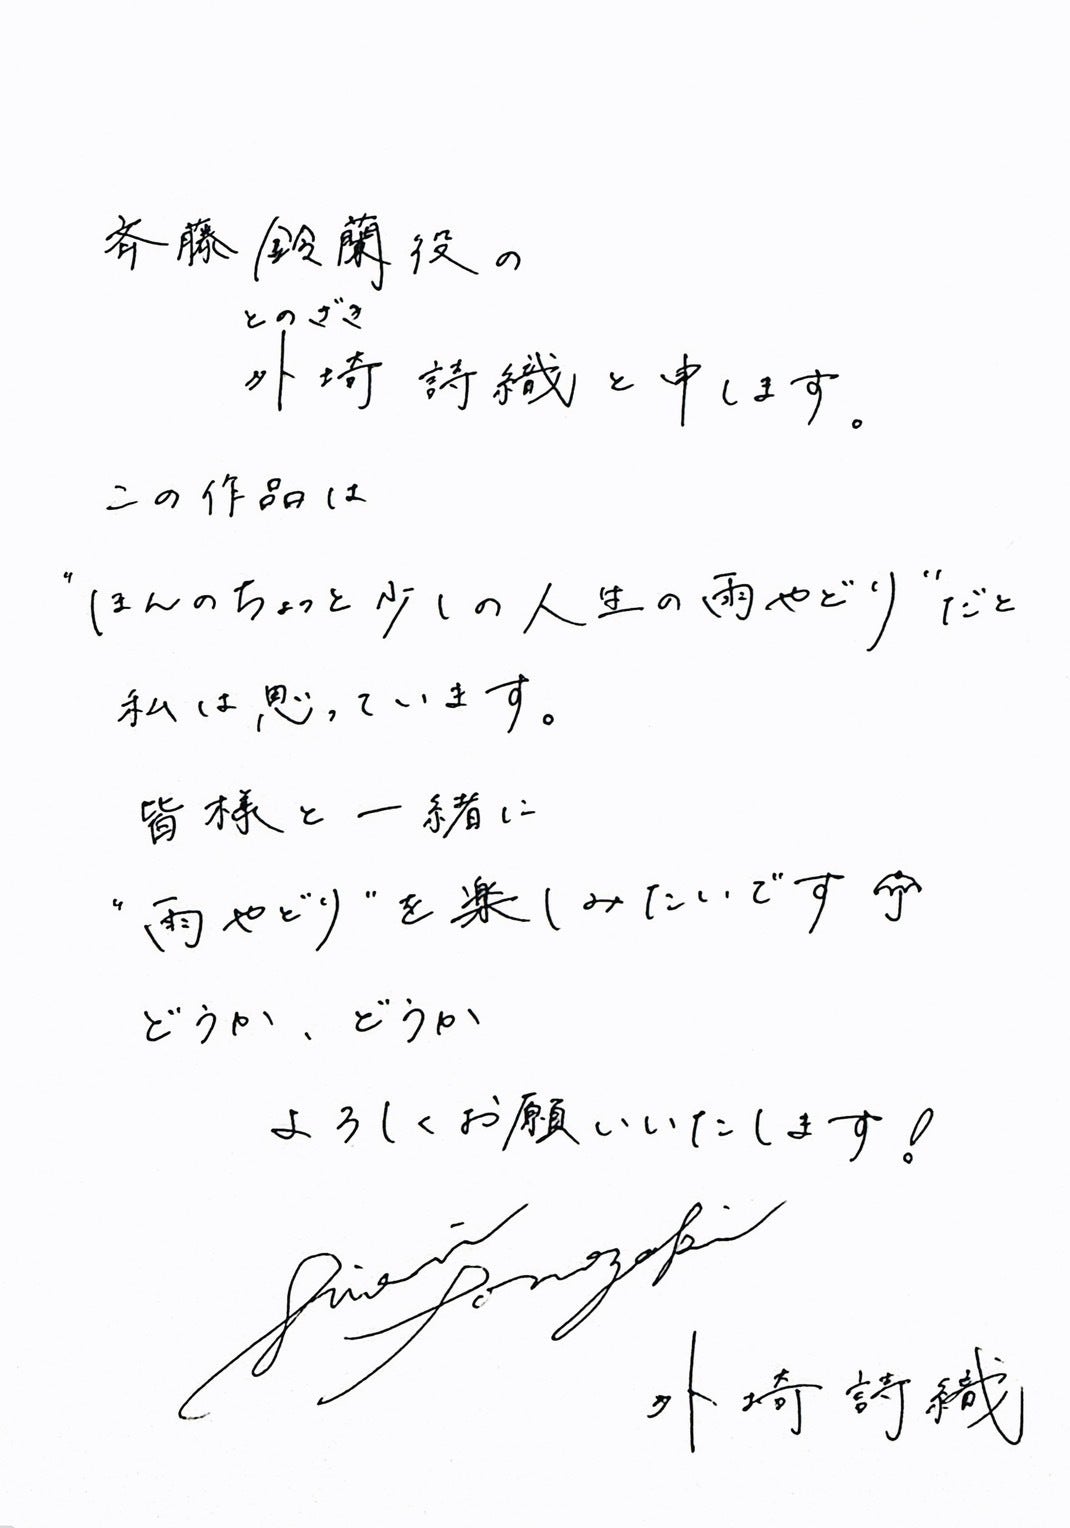 斉藤 鈴蘭役の
とのざき
外埼 詩織と申します。
この作品は
"ほんのちょっと少しの人生の雨やどり"だと
私は思っています。
皆様と一緒に
"雨やどり"を楽しみたいです☂
どうか、どうか
よろしくお願いいたします！
Shiori Tonozaki
外埼 詩織